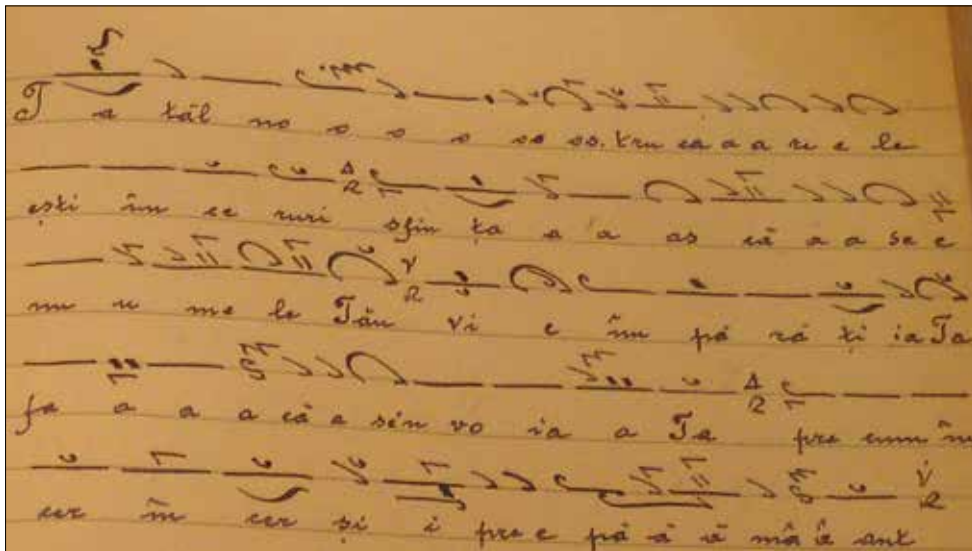 T a tăl no o o o os os. tru ca a a re e le
ești în ce ruri sfin ța a a as că a a se e
nu u me le Tău vi e îm pă ră ți ia Ta
fa a a a că e sén vo ia a Ta pre cum în
cer îm cer și i pre e pă ă ă mâ â ant